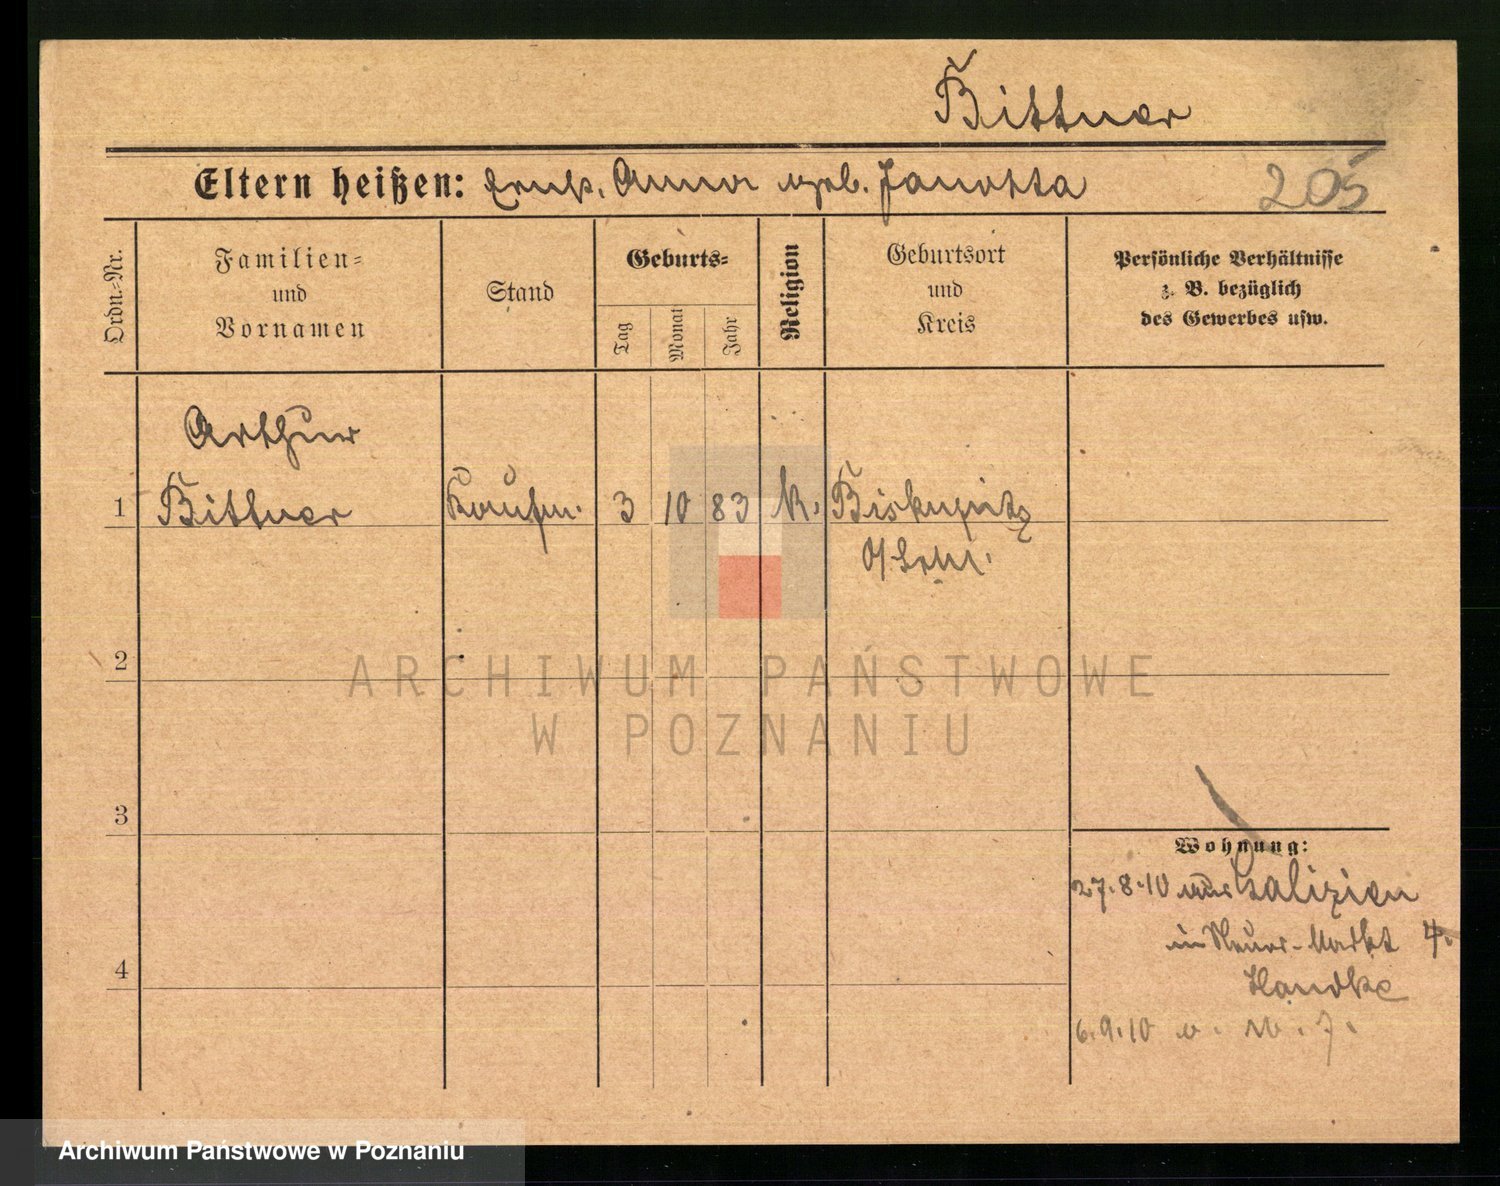 Bittner
Eltern heißen: Ernst. Anna geb. Janotta
205
Ordn.-Nr.
Familien-
und
Vornamen
Stand
Geburts-
Tag
Monat
Jahr
Religion
Geburtsort
und
Kreis
Persönliche Verhältnisse
z. B. bezüglich
des Gewerbes usw.
Arthur
1 Bittner Kaufm. 3 10 83 k. Biskupitz
O/Schl.
2
ARCHIWUM PAŃSTWOWE
W POZNANIU
3
Wohnung:
27.8.10 aus Galizien
in Neuer-Markt 4.
Handke
4
6.9.10
Archiwum Państwowe w Poznaniu